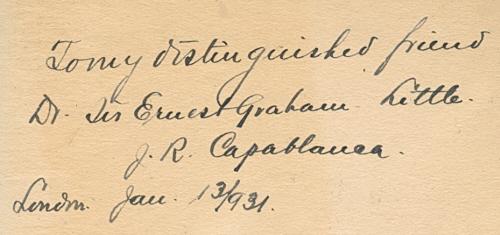 To my distinguished friend
Dr. Sir Ernest Graham Little.
J. R. Capablanca.
London. Jan. 13/931.